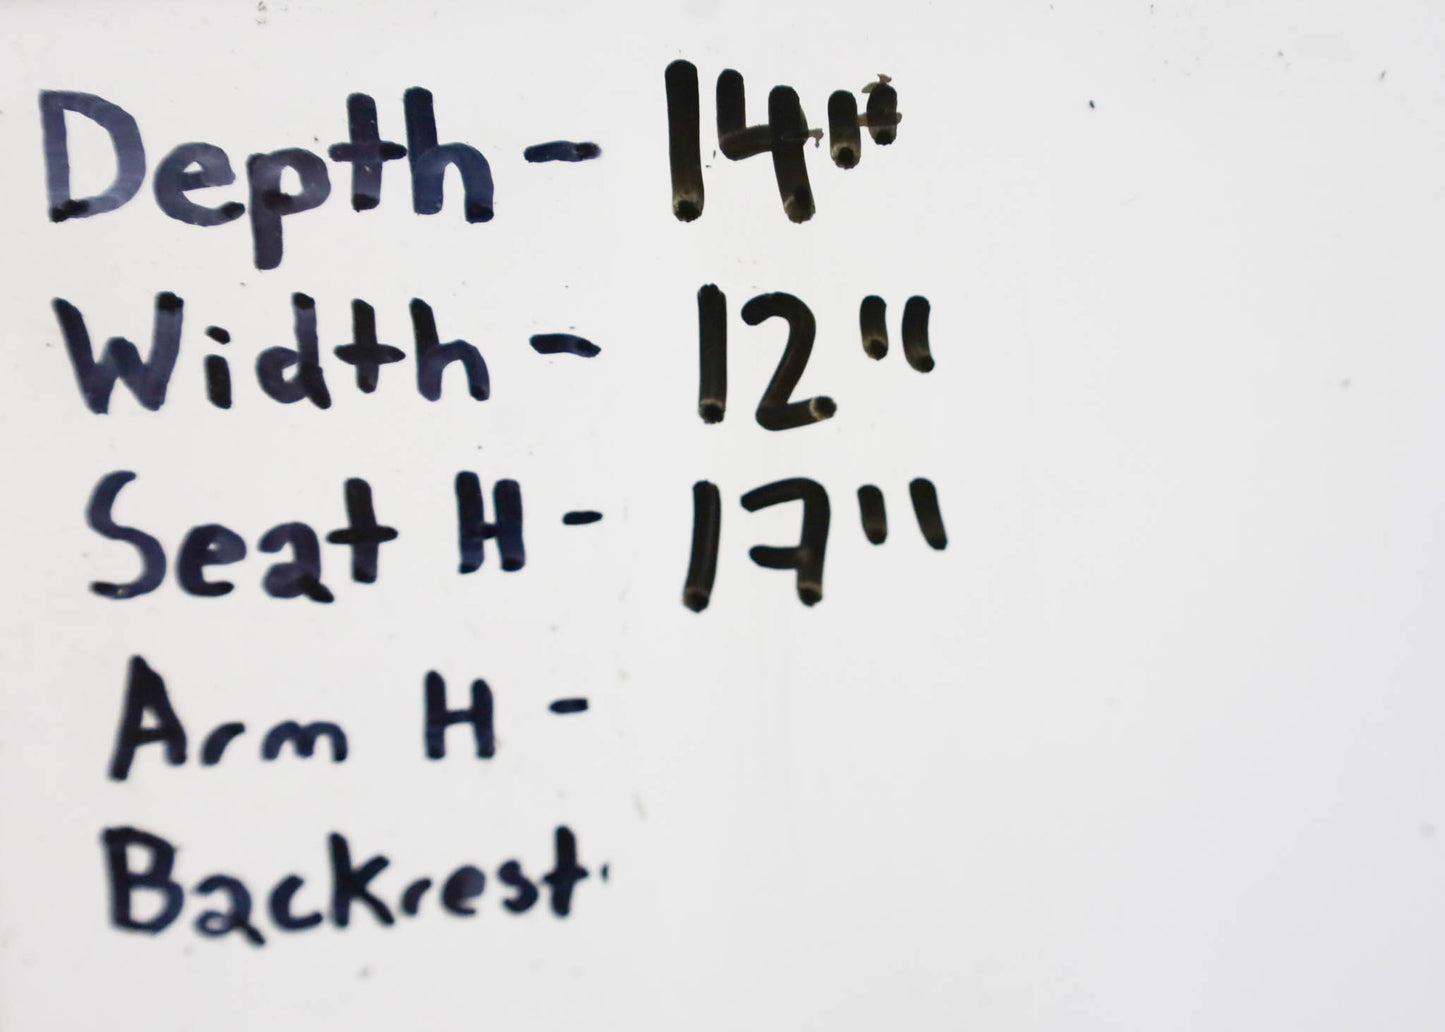 Depth - 14"
Width - 12"
Seat H - 17"
Arm H -
Backrest